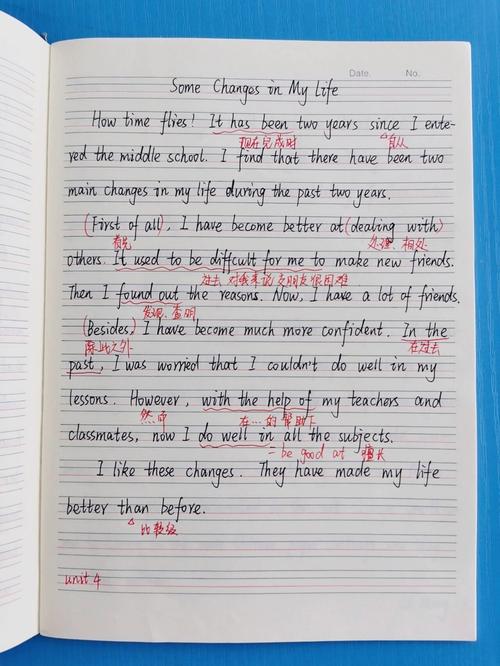 Date. No.
Some Changes in My Life
How time flies! It has been two years since I ente-
现在完成时 自从
red the middle school. I find that there have been two
main changes in my life during the past two years.
(First of all), I have become better at (dealing with)
首先 处理、相处
others. It used to be difficult for me to make new friends.
过去 对我来说 交朋友很困难
Then I found out the reasons. Now, I have a lot of friends.
发现、查明
(Besides) I have become much more confident. In the
除此之外 在过去
past, I was worried that I couldn't do well in my
lessons. However, with the help of my teachers and
然而 在...的帮助下
classmates, now I do well in all the subjects.
= be good at 擅长
I like these changes. They have made my life
better than before.
比较级
unit 4